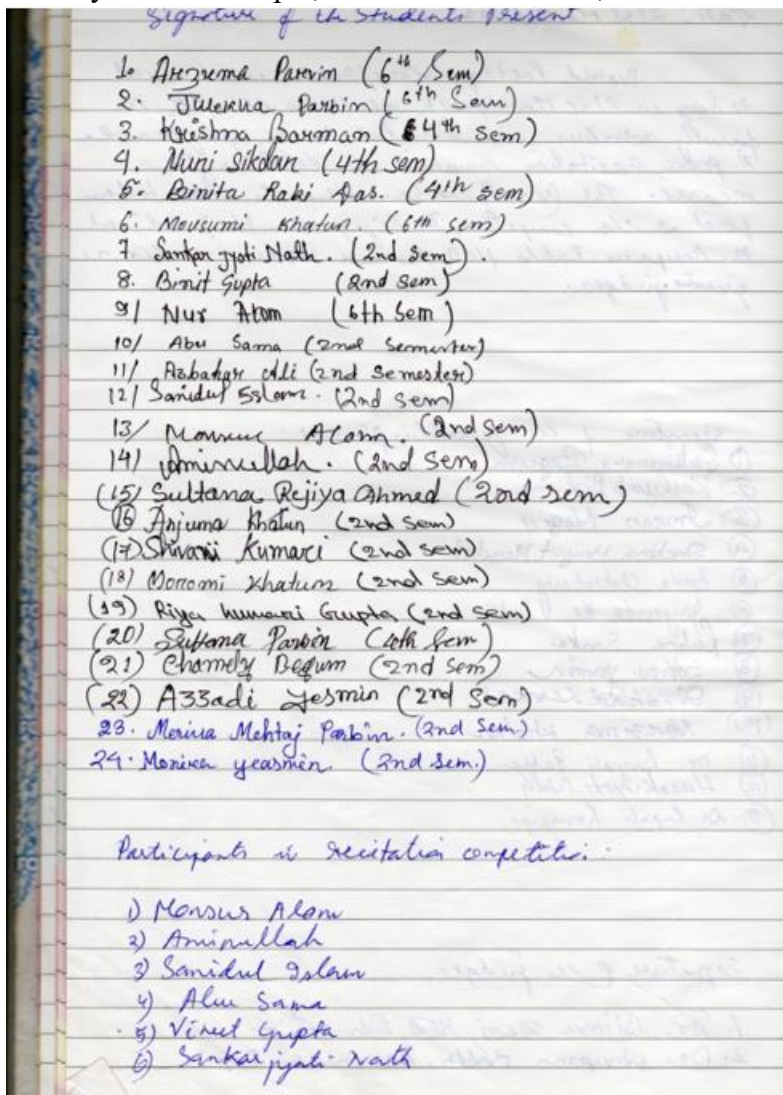 Signature of the Students Present
1. Arzuma Parvin (6th Sem)
2. Julekha Parbin (6th Sem)
3. Krishna Barman (4th sem)
4. Nuri Sikdar (4th sem)
5. Binita Raki Das. (4th sem)
6. Mousumi Khatun. (6th sem)
7. Sankar jyoti Nath. (2nd Sem).
8. Binit Gupta (2nd Sem)
9/ Nur Alom (6th Sem)
10/ Abu Sama (2nd Semester)
11/ Azbahar Ali (2nd Semester)
12/ Sanidul Islam. (2nd Sem)
13/ Alom. (2nd Sem)
14/ Aminullah. (2nd Sem)
(15) Sultana Rejiya Ahmed (2nd sem)
16 Anjuma Khatun (2nd Sem)
(17) Shivani Kumari (2nd sem)
(18) Monomi Khatun (2nd Sem)
(19) Riya kumari Gupta (2nd Sem)
(20) Sultana Parbin (4th Sem)
(21) Chamely Begum (2nd Sem)
(22) Azzadi Jesmin (2nd Sem)
23. Mehtaj Parbin. (2nd Sem.)
24. yeasmin. (2nd Sem.)
Participants in recitation competition:
1) Monsur Alom
2) Aminullah
3) Sanidul Islam
4) Abu Sama
5) Vinit Gupta
6) Sankar jyoti Nath